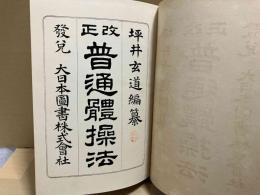 坪井玄道編纂
改正
普通體操法
發兌 大日本圖書株式會社